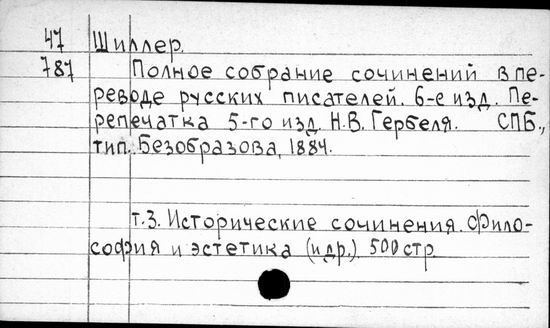 47 Шиллер.
787 Полное собрание сочинений в пе-
реводе русских писателей. 6-е изд. Пе-
репечатка 5-го изд. Н.В. Гербеля. СПБ.,
тип. Безобразова, 1884.
т.3. Исторические сочинения. Фило-
софия и эстетика (и др.) 500 стр.